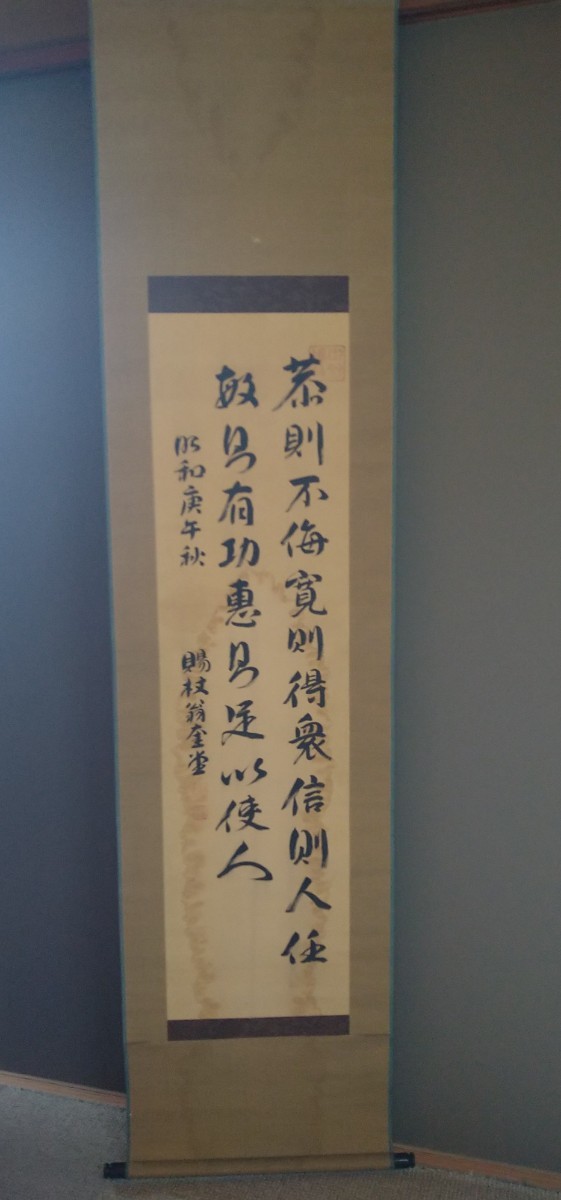 恭則不侮寛則得衆信則人任
敏則有功惠則足以使人
昭和庚午秋
賜杖翁奎堂